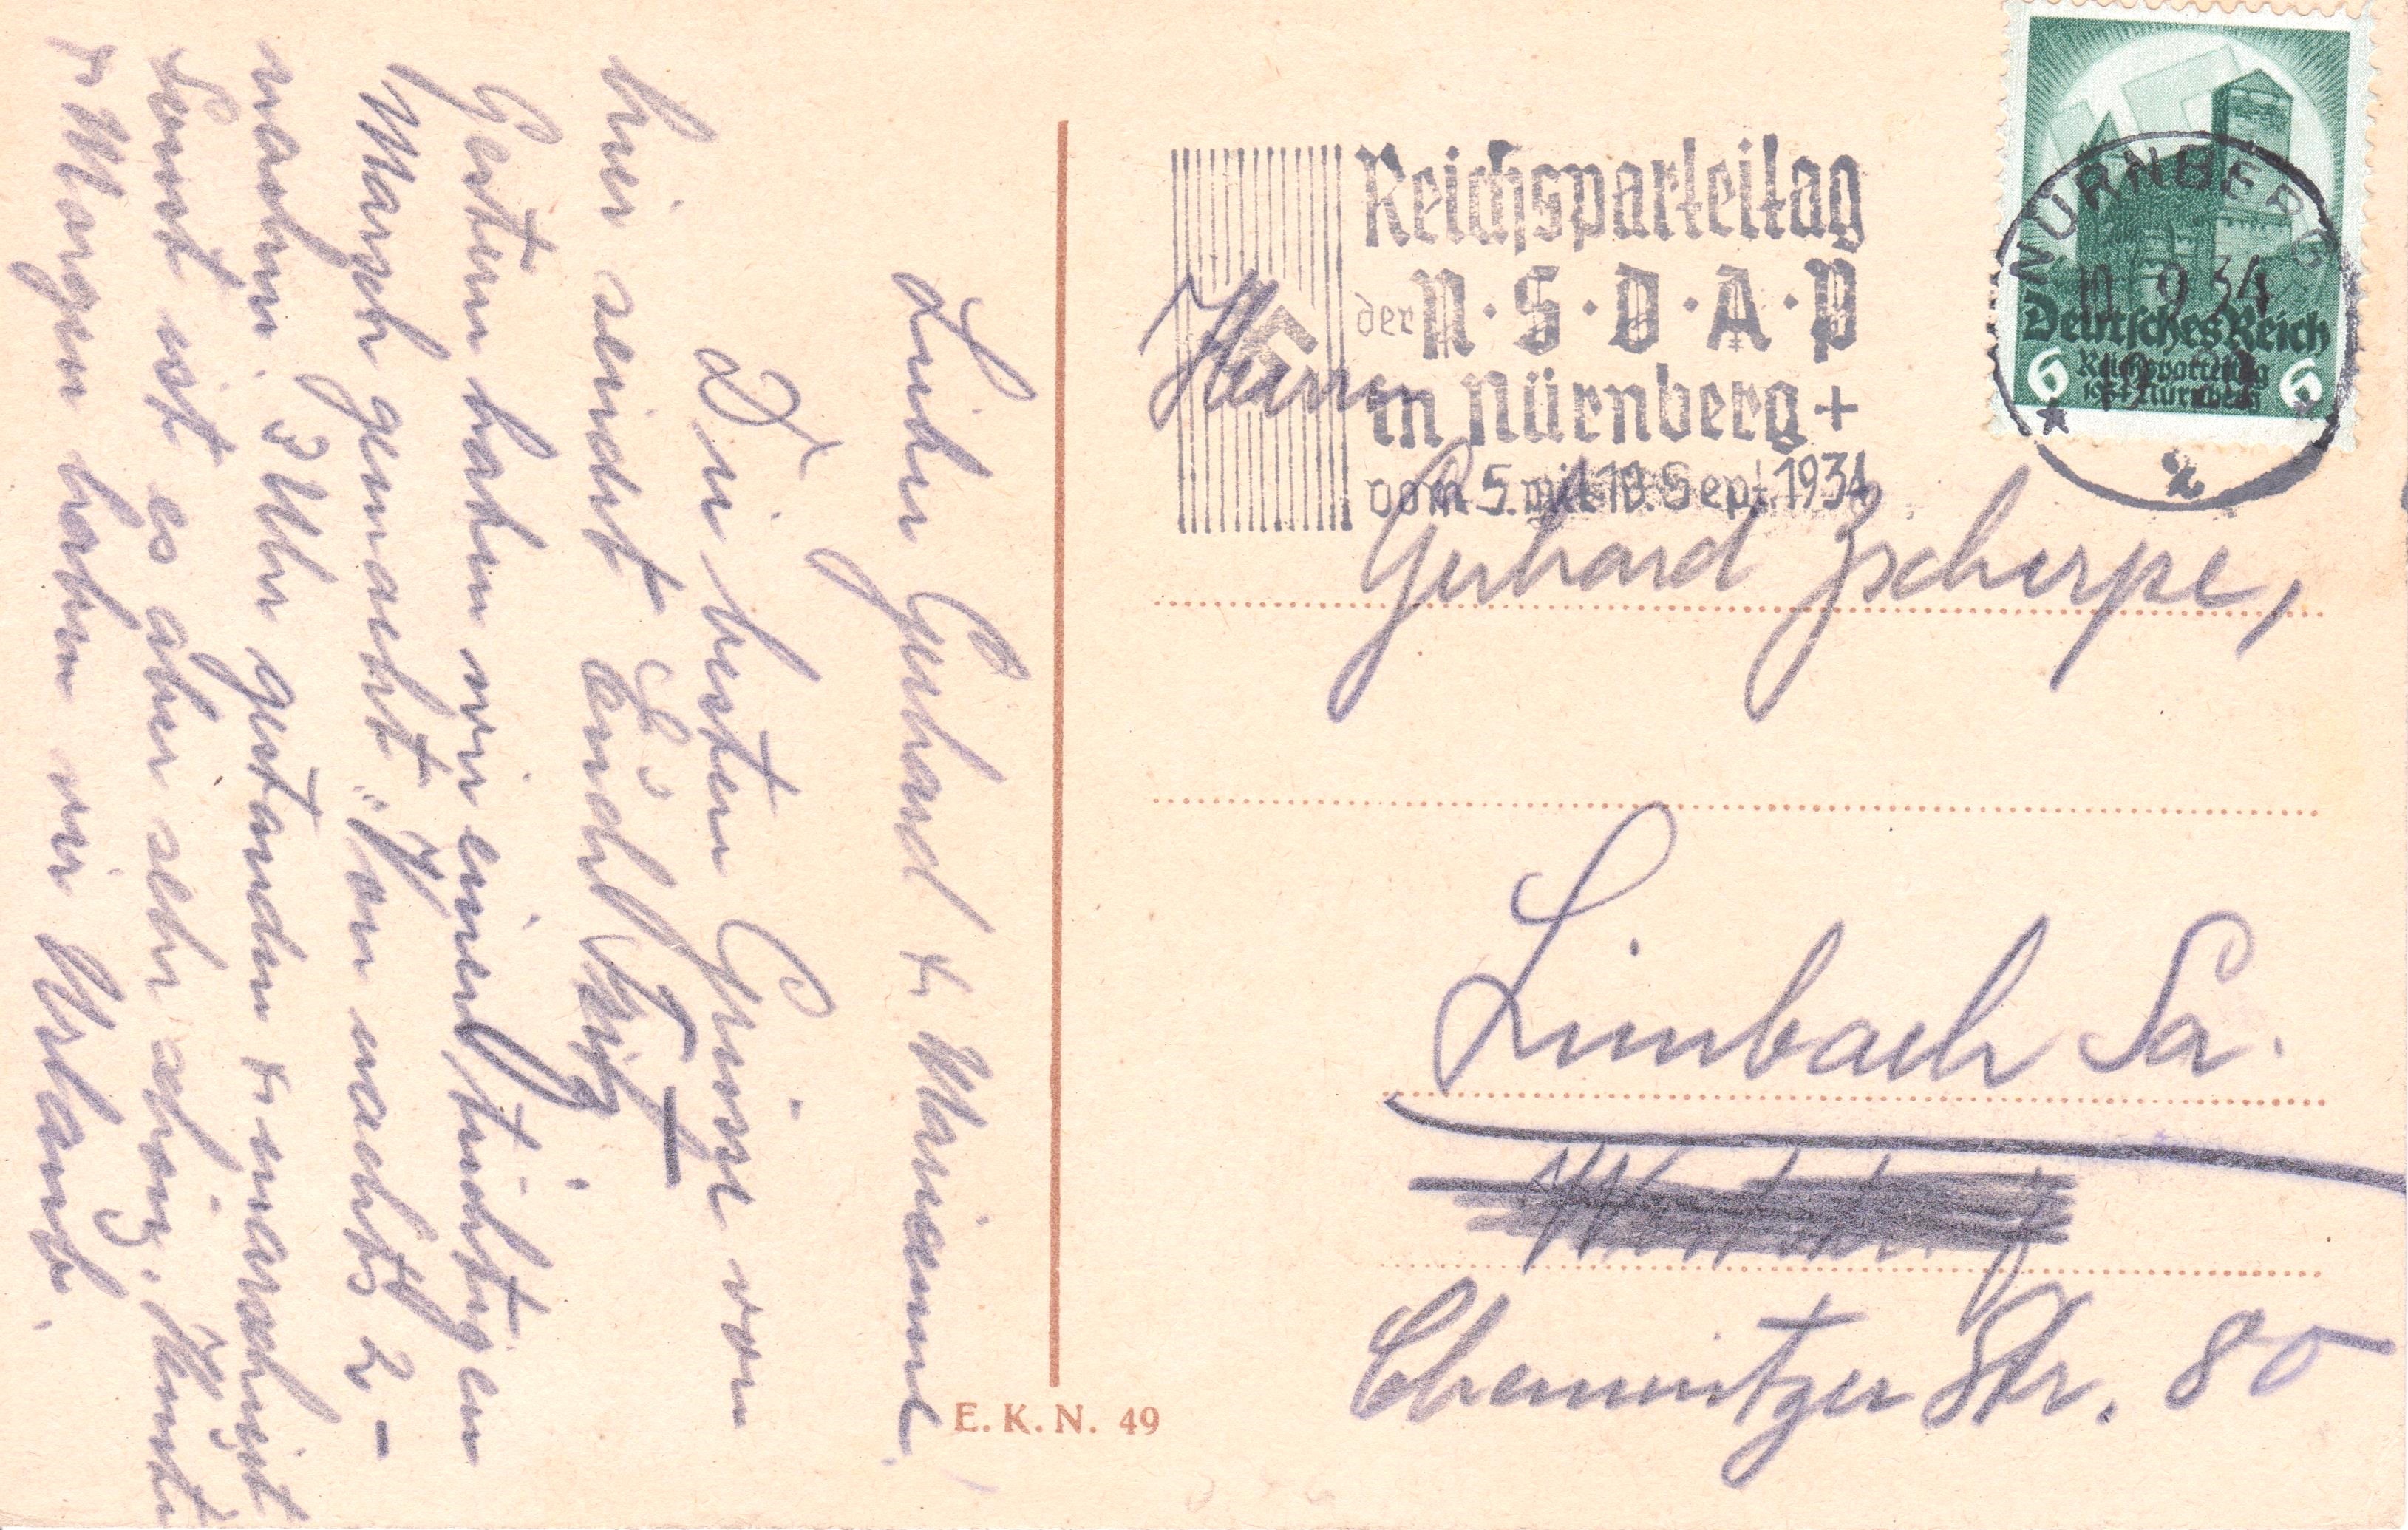 Lieber Gerhard + Marianne!
Die besten Grüsse von
hier sendet Euch
Gestern haben wir einen tüchtigen
Marsch gemacht. Von nachts 2 -
nachm. 3 Uhr gestanden + marschiert
Sonst ist es aber sehr schön. Heute
+ Morgen haben wir Urlaub.
Reichsparteitag
der N·S·D·A·P
in Nürnberg +
vom 5. mit 10. Sept. 1934
NÜRNBERG
10.9.34
2
Deutsches Reich
6 Reichsparteitag 6
1934 Nürnberg
Herrn
Gerhard Zscherpe,
Limbach Sa.
Chemnitzer Str. 80
E. K. N. 49